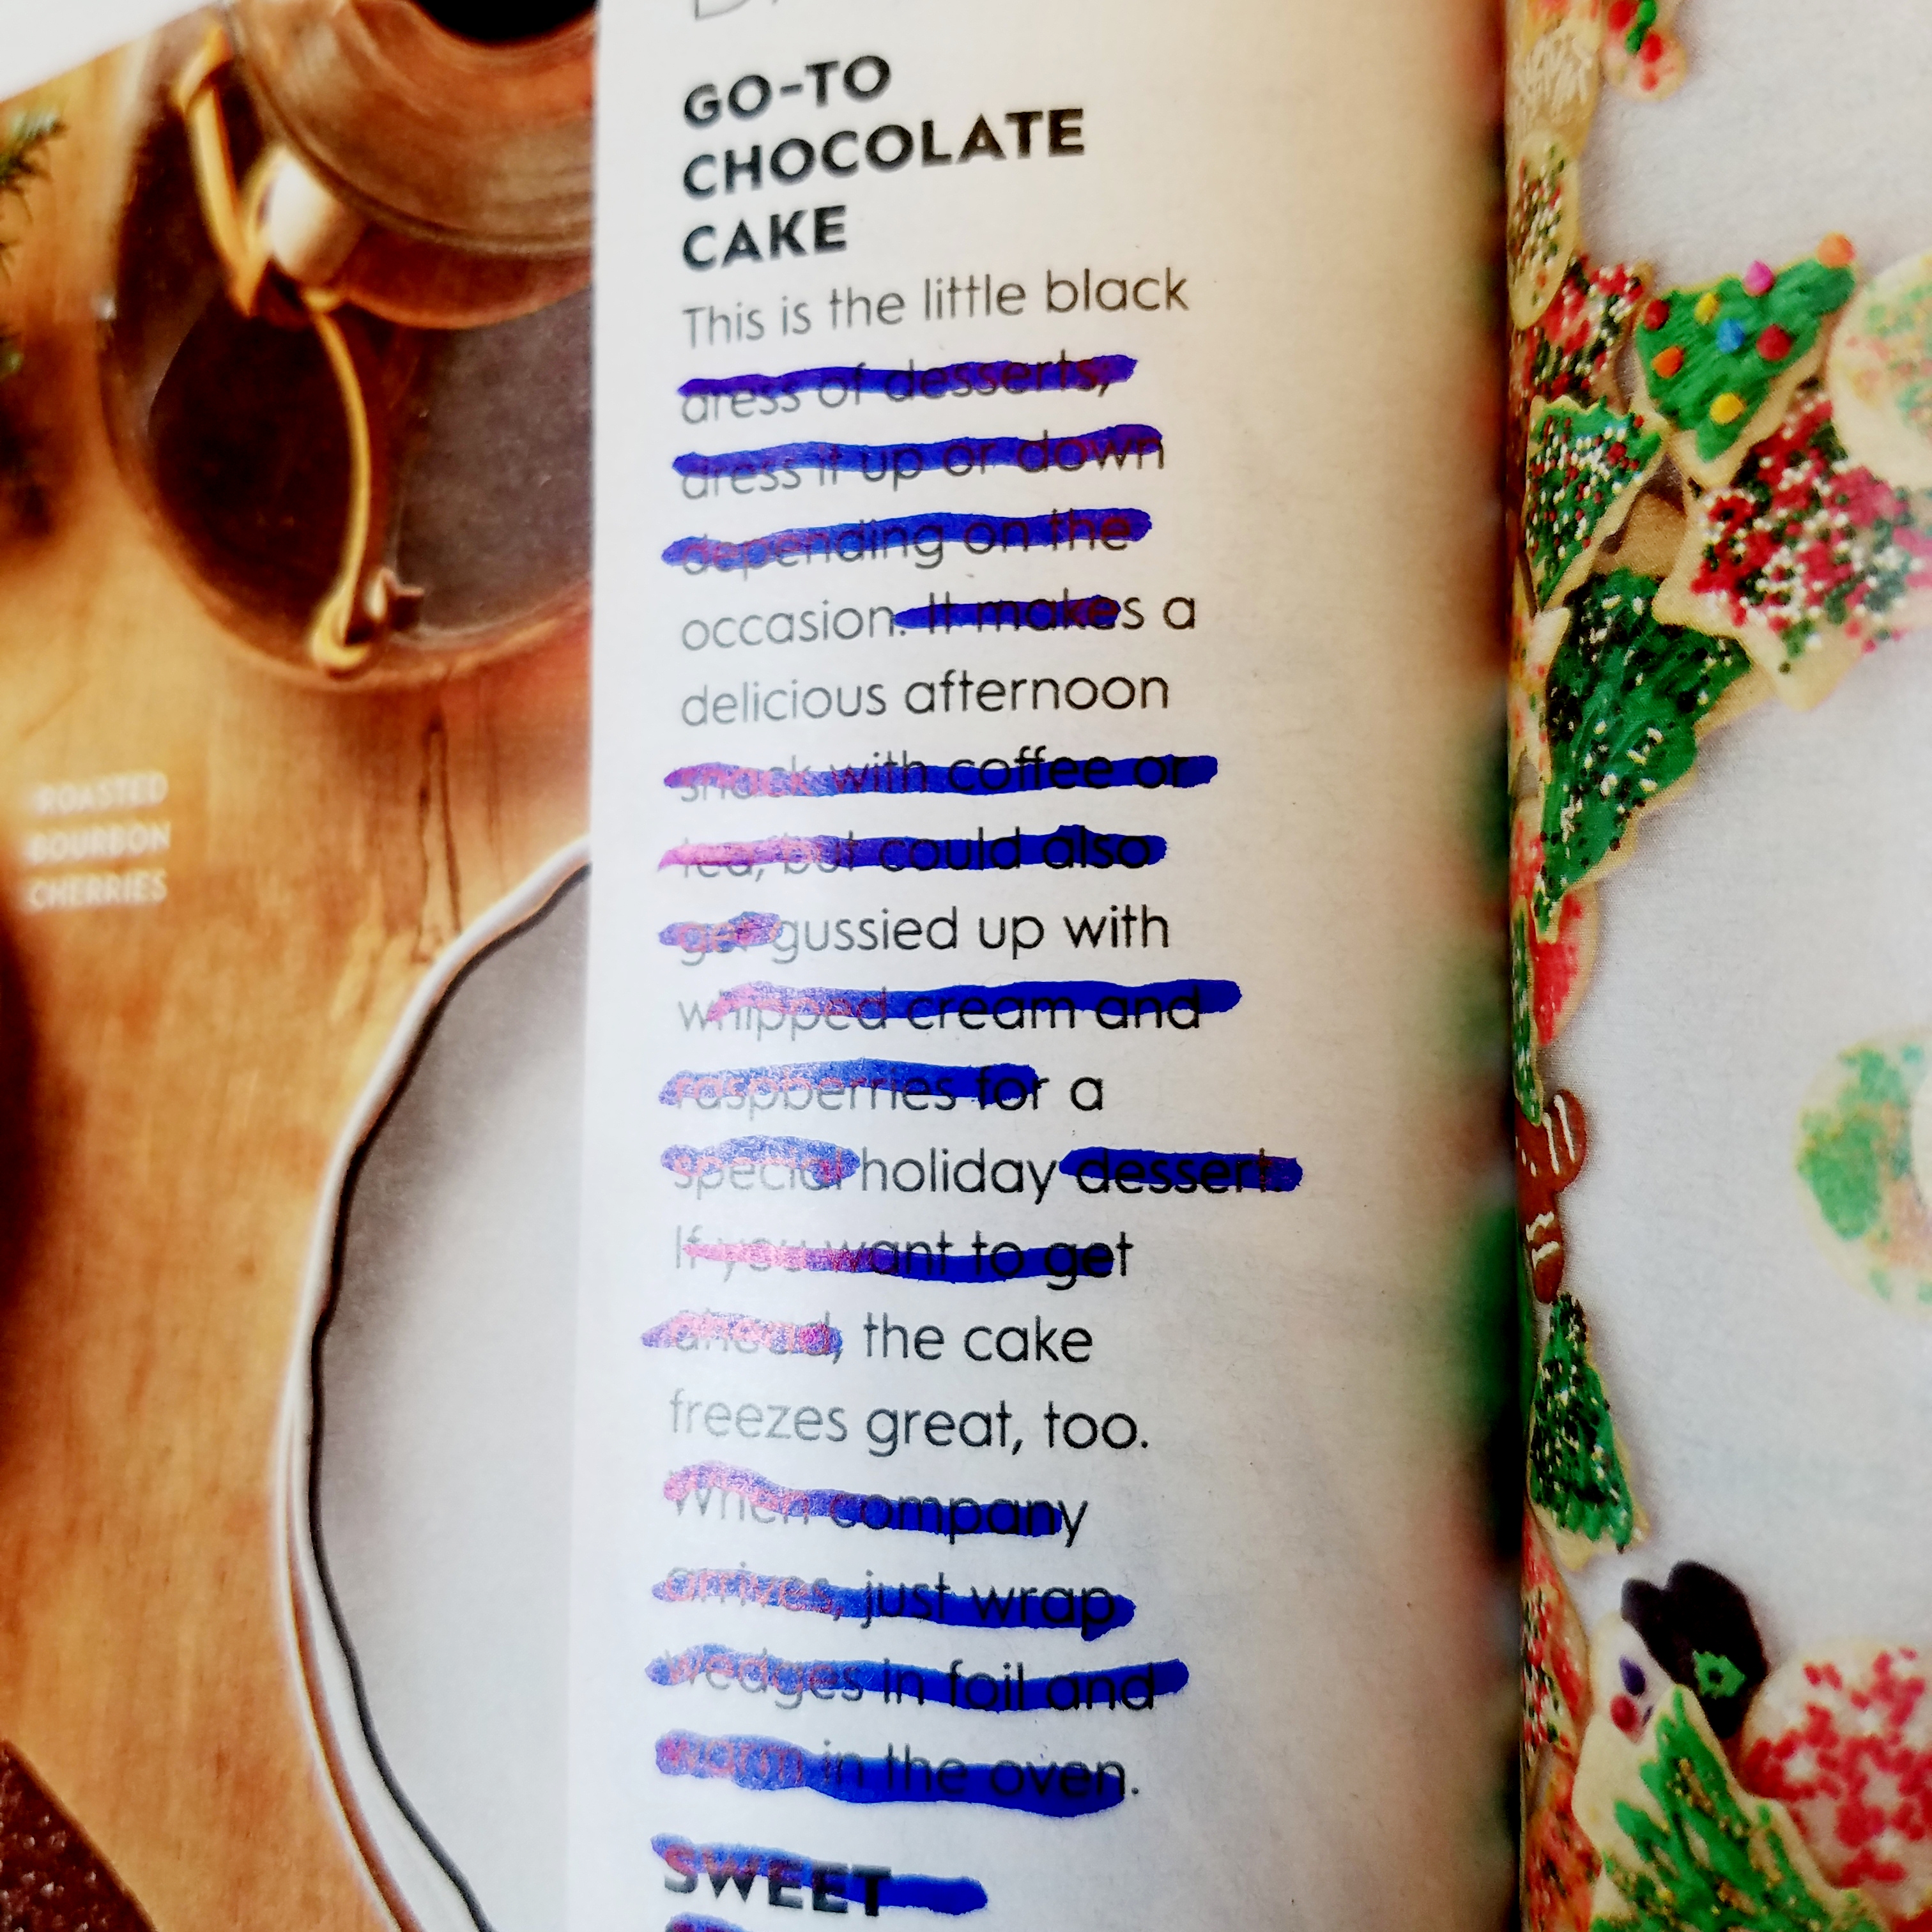 GO-TO
CHOCOLATE
CAKE
This is the little black
dress of desserts,
dress it up or down
depending on the
occasion. It makes a
delicious afternoon
snack with coffee or
tea, but could also
get gussied up with
whipped cream and
raspberries for a
special holiday dessert.
If you want to get
ahead, the cake
freezes great, too.
When company
arrives, just wrap
wedges in foil and
warm in the oven.
SWEET
ROASTED
BOURBON
CHERRIES